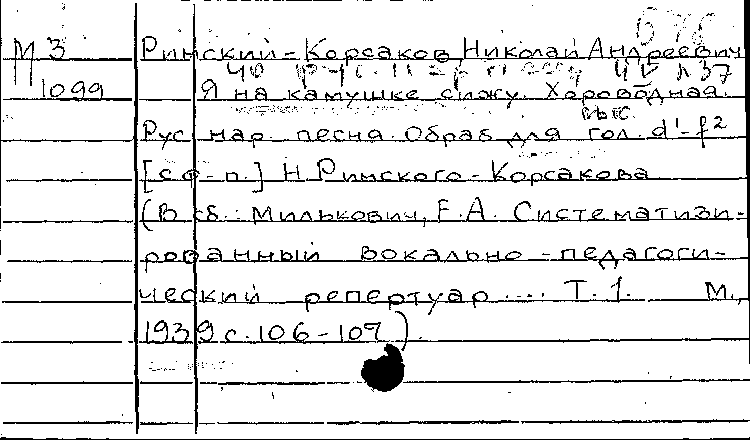 М 3
1099
Римский-Корсаков, Николай Андреевич
Я на камушке сижу. Хороводная.
Рус. нар. песня. Обраб. для выс. гол. d'-f²
[с ф-п.] Н. Римского-Корсакова
(В сб.: Милькович, Е.А. Системати­зи-
рованный вокально-педагоги-
ческий репертуар .... Т.1. М.,
1939 с. 106-107).